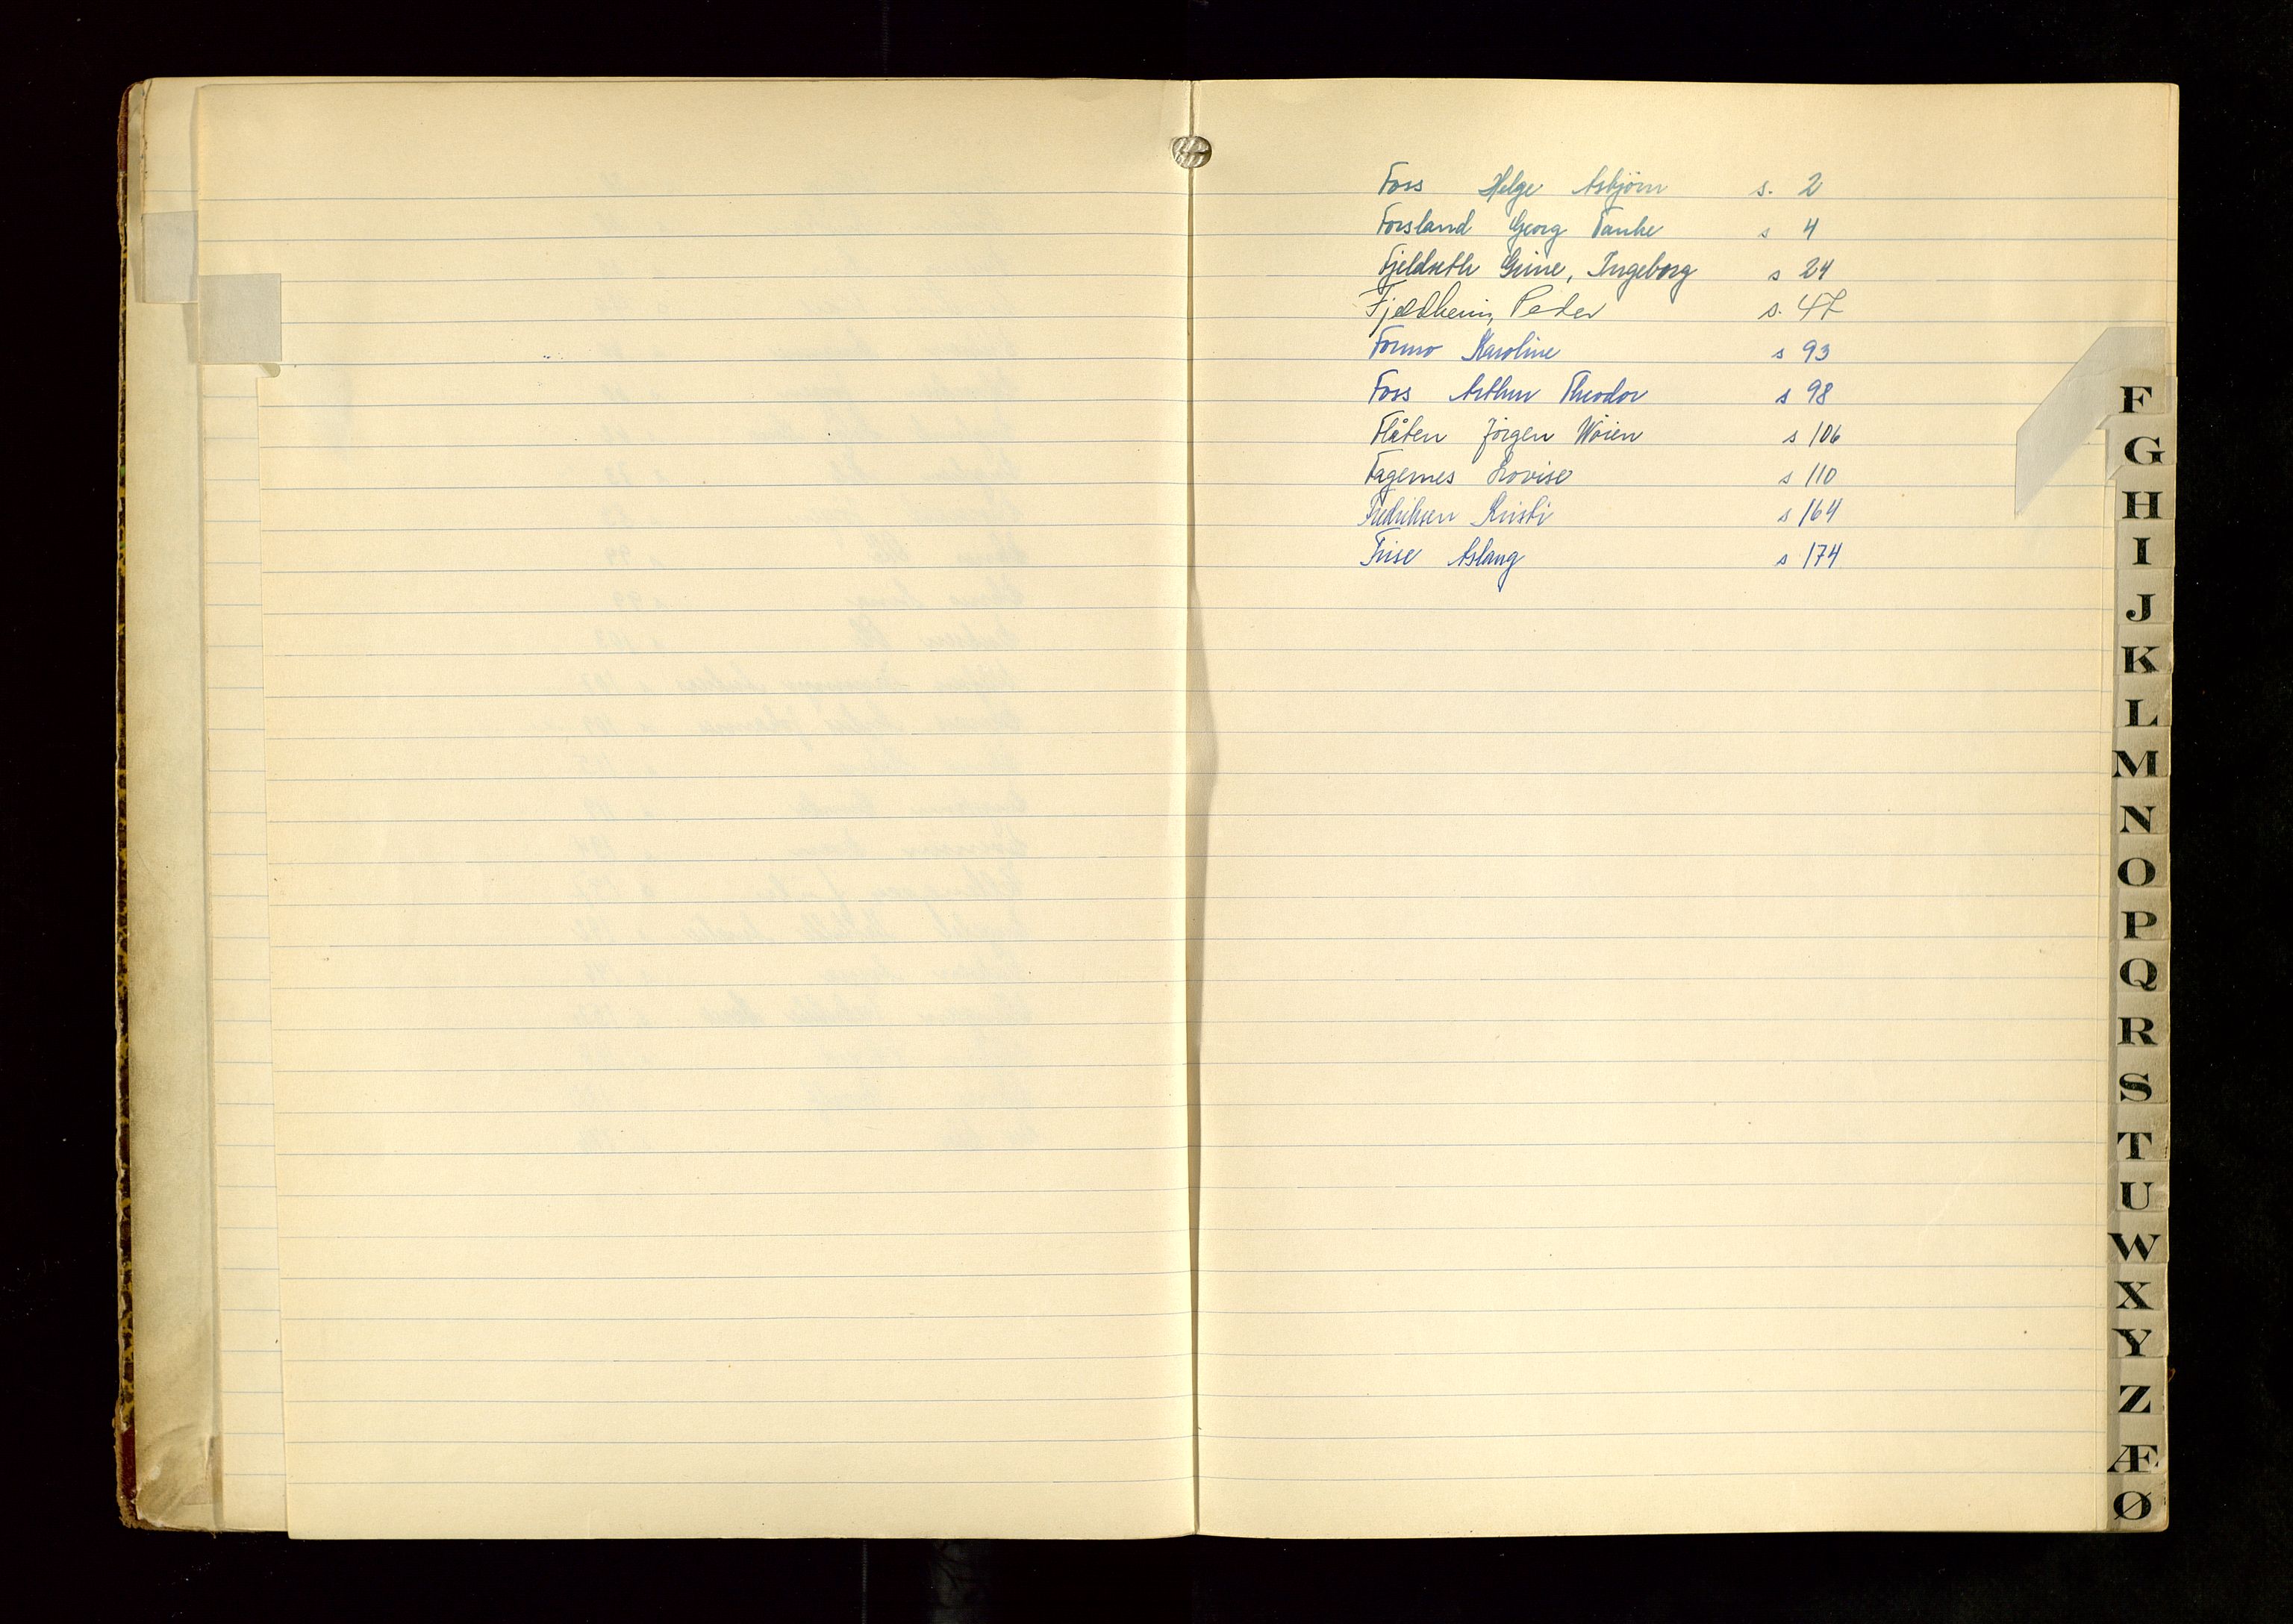 Foss Helge Asbjörn s. 2
Forsland Georg Tanke s 4
Fjeldseth Grine, Ingeborg s 24
Fjeldheim, Peder s. 47
Formo Karoline s 93
Foss Arthur Theodor s 98
Flåten Jörgen Wöien s 106
Fagernes Lovise s 110
Fredriksen Kristi s 164
Frise Aslaug s 174
F
G
H
I
J
K
L
M
N
O
P
Q
R
S
T
U
W
X
Y
Z
Æ
Ø